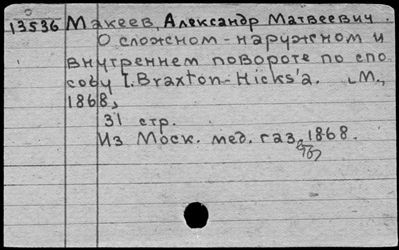 13536 Макеев, Александр Матвеевич.
О сложном - наружном и
внутреннем повороте по спо
собу I. Braxton-Hicks'а. М.,
1868,
31 стр.
Из Моск. мед. газ, 1868.